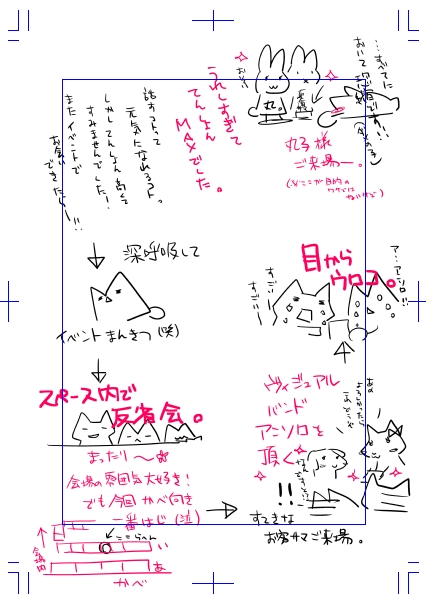 深呼吸して
イベントまんきつ(笑)
スペース内で
反省会。
まったり〜
会場の雰囲気大好き!
でも今回 かべ向き
一番はじ(泣)
ここらへん
い
あ
かべ
すてきな
お客サマご来場。
!!
ヴィジュアル
バンド
アンソロを
頂く
すごいー
すごいー
ア…アンソロ!!
目から
ウロコ。
丸子様
ご来場ー。
丸。
うれしすぎて
てんしょん
MAXでした。
話すコトって
元気になれるコト。
しかしてんしょん高くて
すみませんでした!
またイベントで
お会いできたらー!!